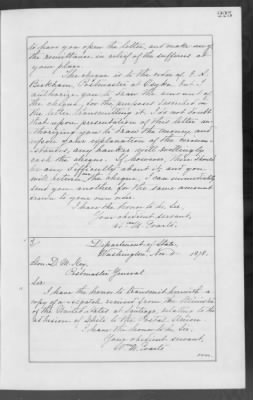 225
to have you open the letter, and make use of
the remittance in relief of the sufferers at
your place.
The cheque is to the order of
Beckham, Postmaster at Osyka, but I
authorize you to draw the amount of
the cheque, for the purposes specified in
the letter transmitting it. I do not doubt
that upon presentation of this letter au-
thorizing you to draw the money and
upon your explanation of the circum-
stances, any banker will willingly
cash the cheque. If, however, there should
be any difficulty about it, and you
will return the cheque, I can immediately
send you another for the same amount
drawn to your own order.
I have the honor to be, Sir,
Your obedient servant,
Wm. M. Evarts.
Department of State,
Washington, Nov. 1878.
Hon. D. M. Key,
Postmaster General
Sir:
I have the honor to transmit herewith a
copy of a despatch received from the Minister
of the United States at Santiago, relating to the
adhesion of Chile to the Postal Union
I have the honor to be, Sir,
Your obedient servant,
Wm. M. Evarts